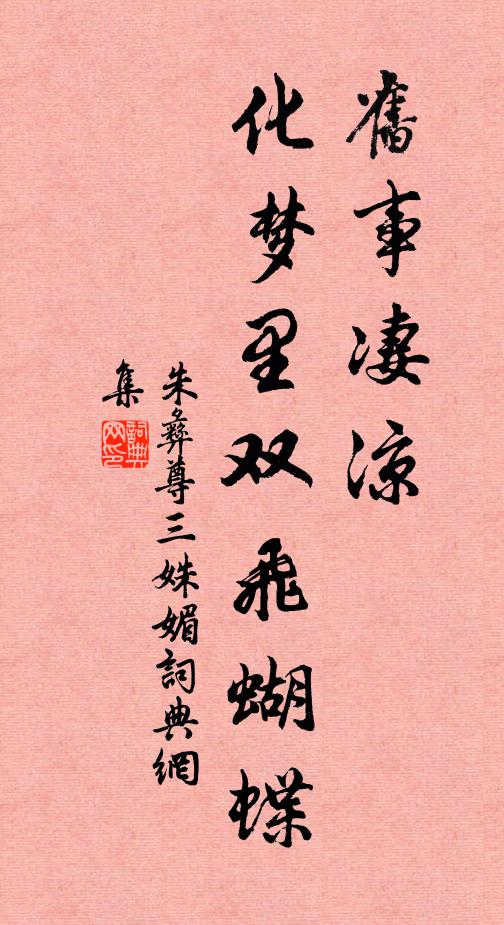 舊事凄涼
化梦里双飛蝴蝶
朱彝尊三姝媚詞典網
集
詞典
网印